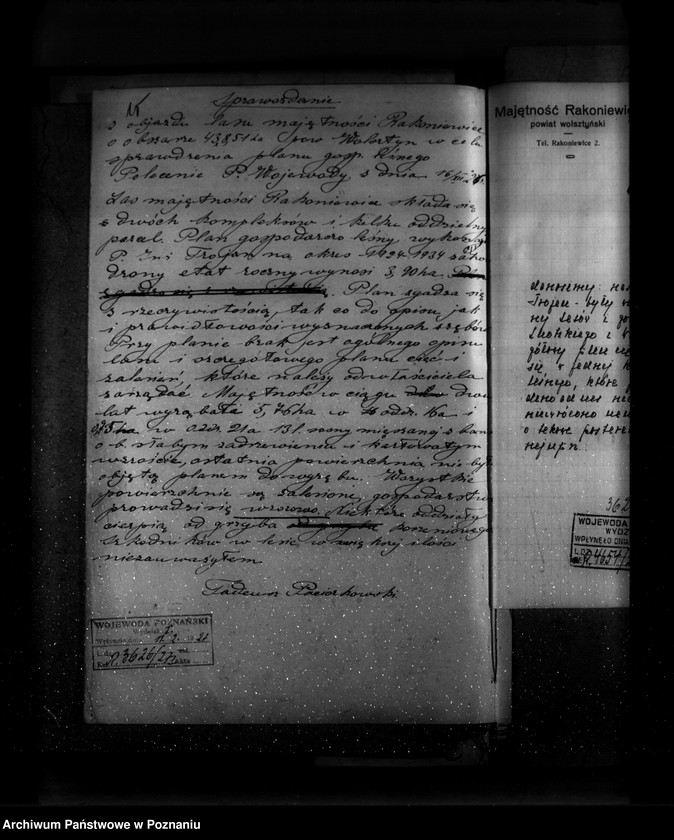 Sprawozdanie
z objazdu lasu majętności Rakoniewice
o obszarze 438,51 ha pow. Wolsztyn w celu
sprawdzenia planu gosp. leśnego
Polecenie P. Wojewody z dnia
Las majętności Rakoniewice składa się
z dwóch kompleksów i kilku oddzielnych
parcel. Plan gospodarczo leśny wykonał
P. Inż Trojan na okres 1924-1934
etat roczny wynosi 3,90 ha.
Plan zgadza się
z rzeczywistością, tak co do opisu, jak
i prawidłowości wyznaczonych zrębów
Przy planie brak jest ogólnego opisu
lasu i szczegółowego planu cięć i
zalesień, które należy od właściciela
zażądać Majętność w ciągu dwu
lat wyrąbała 5,76 ha w oddz. 16a i
0,75 ha w oddz. 21a 13 l. sosny mieszanej z
o b. słabym zadrzewieniu i karłowatym
wzroście, ostatnia powierzchnia nie była
objęta planem do wyrębu. Wszystkie
powierzchnie są zalesione, gospodarstwo
prowadzi się wzorowo. Niektóre oddziały
cierpią od grzyba korzeniowego
szkodników w lesie w większej ilości
niezauważyłem
Tadeusz Paciorkowski
WOJEWODA POZNAŃSKI
Wydział
Wpłynęło dnia
L. dz. 3626/27
Majętność Rakoniewic
powiat wolsztyński
Tel. Rakoniewice 2.
donosimy
Trojan - były
nej Lasów z
się, z jednej
leśnego, które
niezwrócono
o łaskawe
362
WOJEWODA
WYDZ
WPŁYNĘŁO DNIA
L. DZ. 4654/2
Archiwum Państwowe w Poznaniu